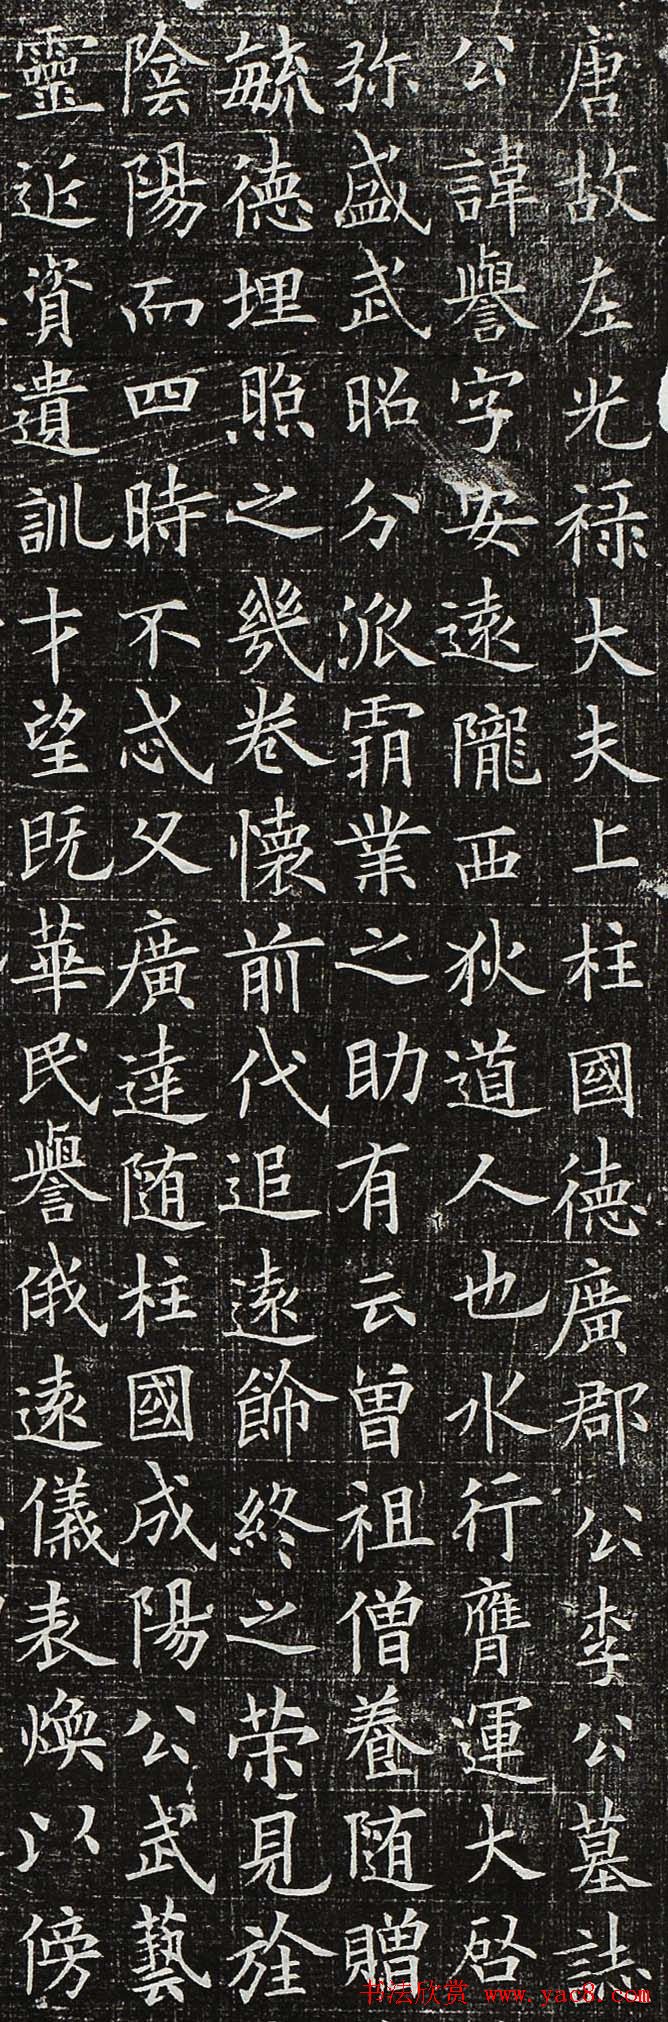 唐故左光禄大夫上柱國德廣郡公李公墓誌
公諱譽字安遠隴西狄道人也水行膺運大啓
弥盛武昭分派霸業之助有云曾祖僧養随贈
毓德埋照之幾卷懷前代追遠飾終之荣見於
陰陽而四時不忒父廣達随柱國成陽公武藝
靈近資遺訓才望既華民譽俄遠儀表煥以傍
书法欣赏 www.yac8.com